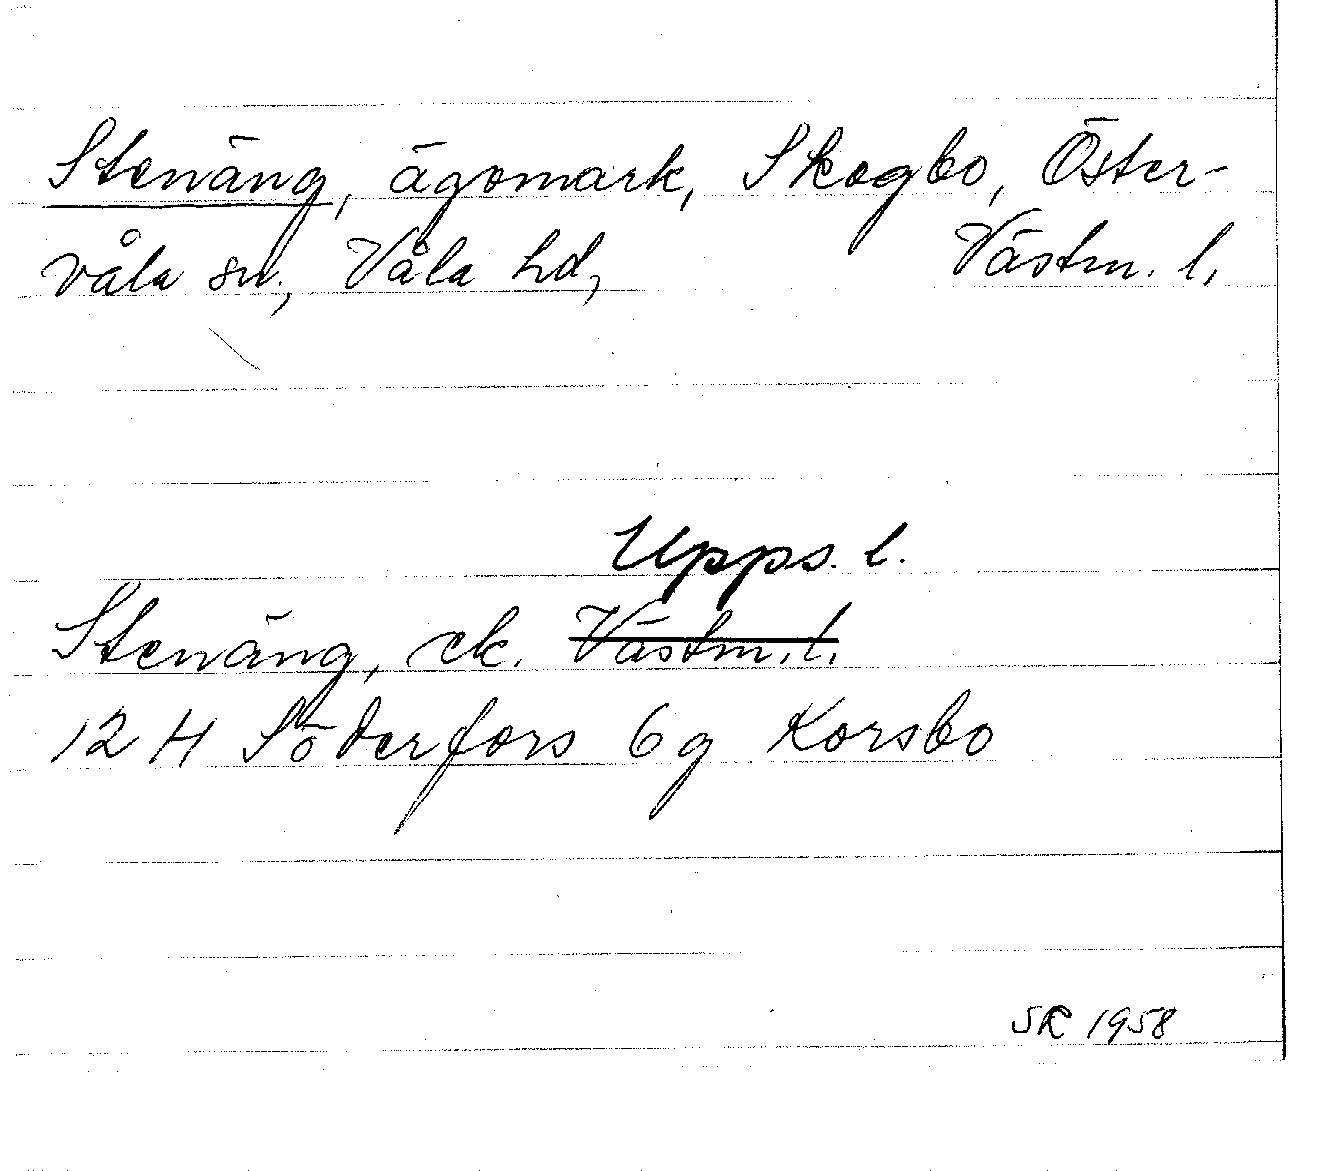 Stenäng, ägomark, Skogbo, Öster-
våla sn, Våla hd, Västm. l.
Upps. l.
Stenäng, ek. Västm. l.
12 H Söderfors 6g Korsbo
SR 1958